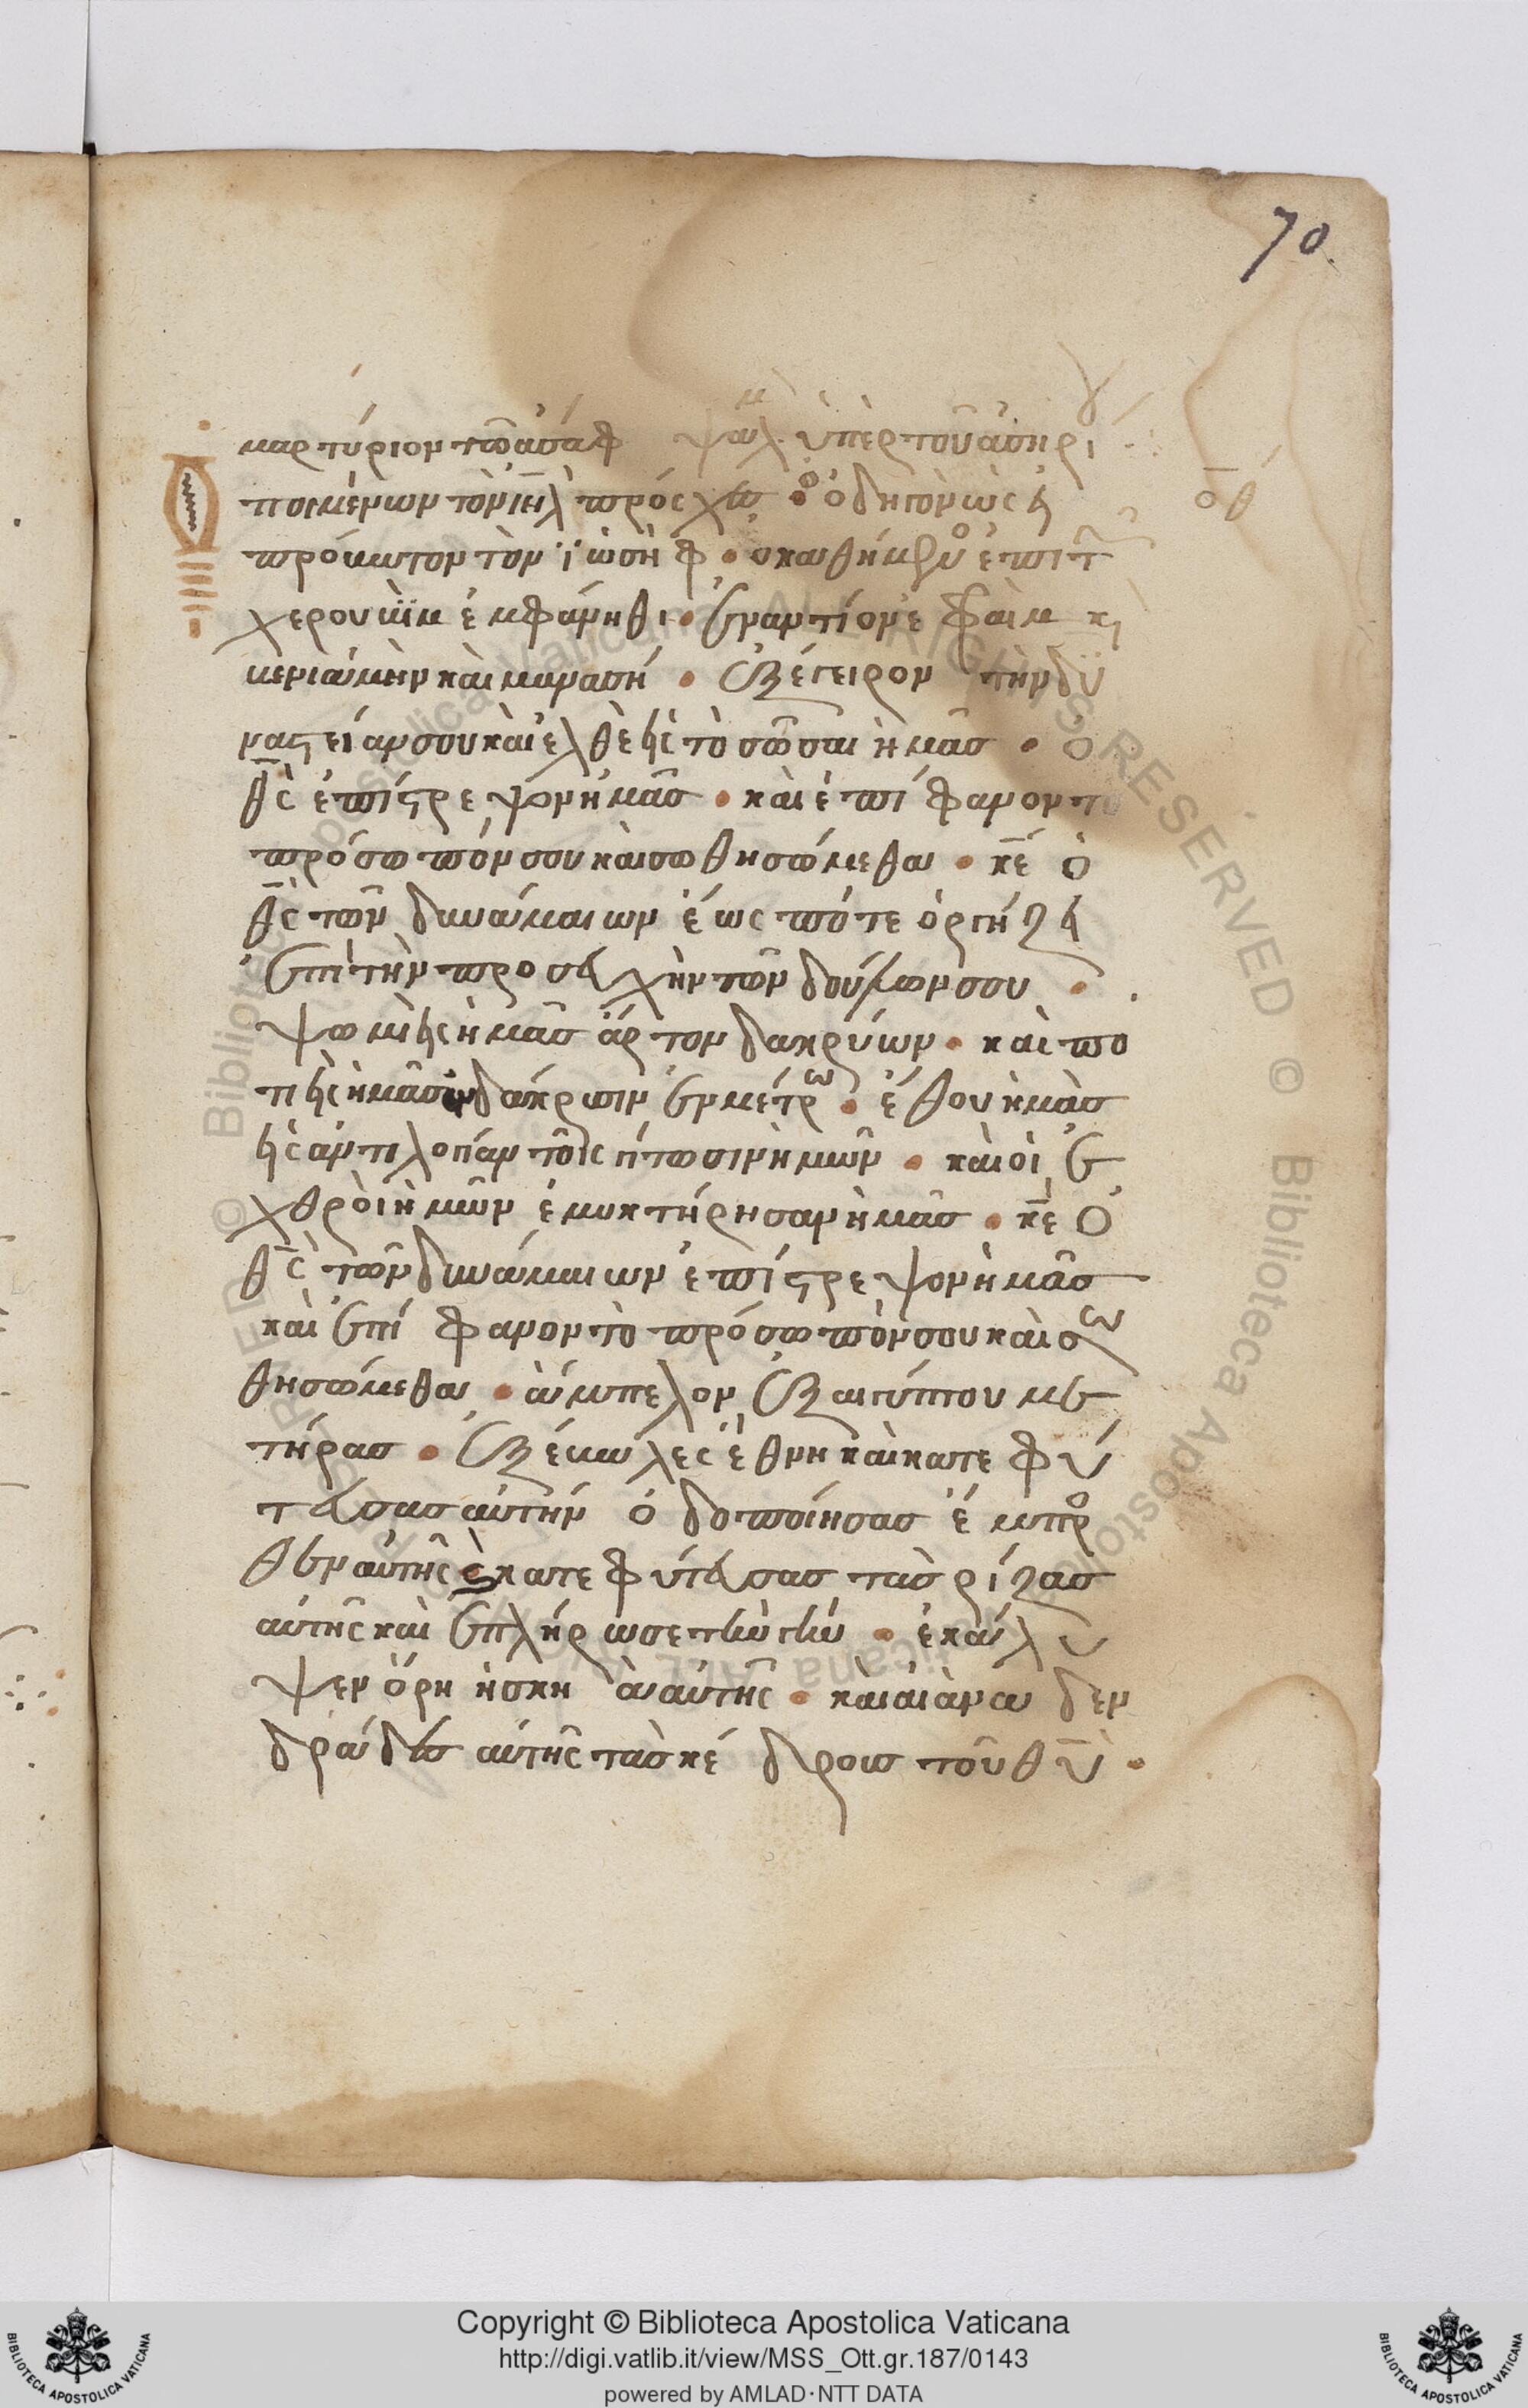 70.
μαρτύριον τῶ ἀσάφ ψαλμ ὑπὲρ τοῦ ἀσηρί
ποιμένων τὸν ιηλ πρόσχες ὁ ὁδηγὸν ὡσεὶ
οθ
πρόβατον τὸν ϊωσὴφ • ο καθήμενος ἐπι τ
χερουβὶμ ἐμφάνηθι • ἐναντίον ἐφαὶμ κὶ
βενιαμὴν καὶ μανασή • ἐξέγειρον τὴν δυ
ναστείαν σου καὶ ἐλθὲ εἰς τὸ σῶσαι ἡμᾶσ • Ὁ
θς ἐπίστρεψον ἡμᾶσ • καὶ ἐπίφανον το
πρόσωπόν σου καὶ σωθησώμεθα • κε ὁ
θς τῶν δυνάμαιων ἕως πότε ὀργήζει
ἐπὶ τὴν προσευχὴν τῶν δούλων σου •
ψωμιεῖς ἡμᾶσ ἄρτον δακρύων • καὶ πο
τιεῖς ἡμᾶσ ἐν δάκρσιν ἐν μέτρω • ἔθου ἡμᾶσ
εἰς ἀντιλογίαν τοῖς γήτωσιν ἡμῶν • καὶ οἱ ἐ
χθροὶ ἡμῶν ἐμυκτήρησαν ἡμᾶσ • κε Ὁ
θς τῶν δυνάμαιων ἐπίστρεψον ἡμᾶσ
καὶ ἐπίφανον τὸ πρόσωπόν σου καὶ σω
θησώμεθα • ἄμπελον ἐξ αιγύπτου με
τήρασ • ἐξέβαλες ἔθνη καὶ κατεφύ
τευσασ αὐτήν ὁδοποίησασ ἔμπρο
θεν αὐτῆς κατεφύτευσασ τὰσ ρίζασ
αὐτῆς καὶ ἐπλήρωσε τὴν γὴν • ἐκάλυ
ψεν ὄρη ἡ σκηὰ αὐτῆς • καὶ αἱ ἀνα δεν
δράδεσ αὐτῆς τὰσ κέδρουσ τοῦ θυ •
Copyright © Biblioteca Apostolica Vaticana
http://digi.vatlib.it/view/MSS_Ott.gr.187/0143
powered by AMLAD·NTT DATA